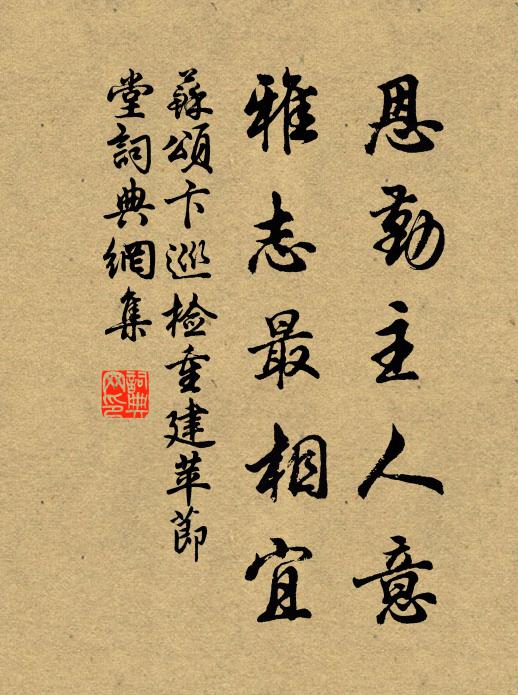 恩勤主人意
雅志最相宜
蘇頌卞巡檢重建苹節
堂詞典網集
詞典網印